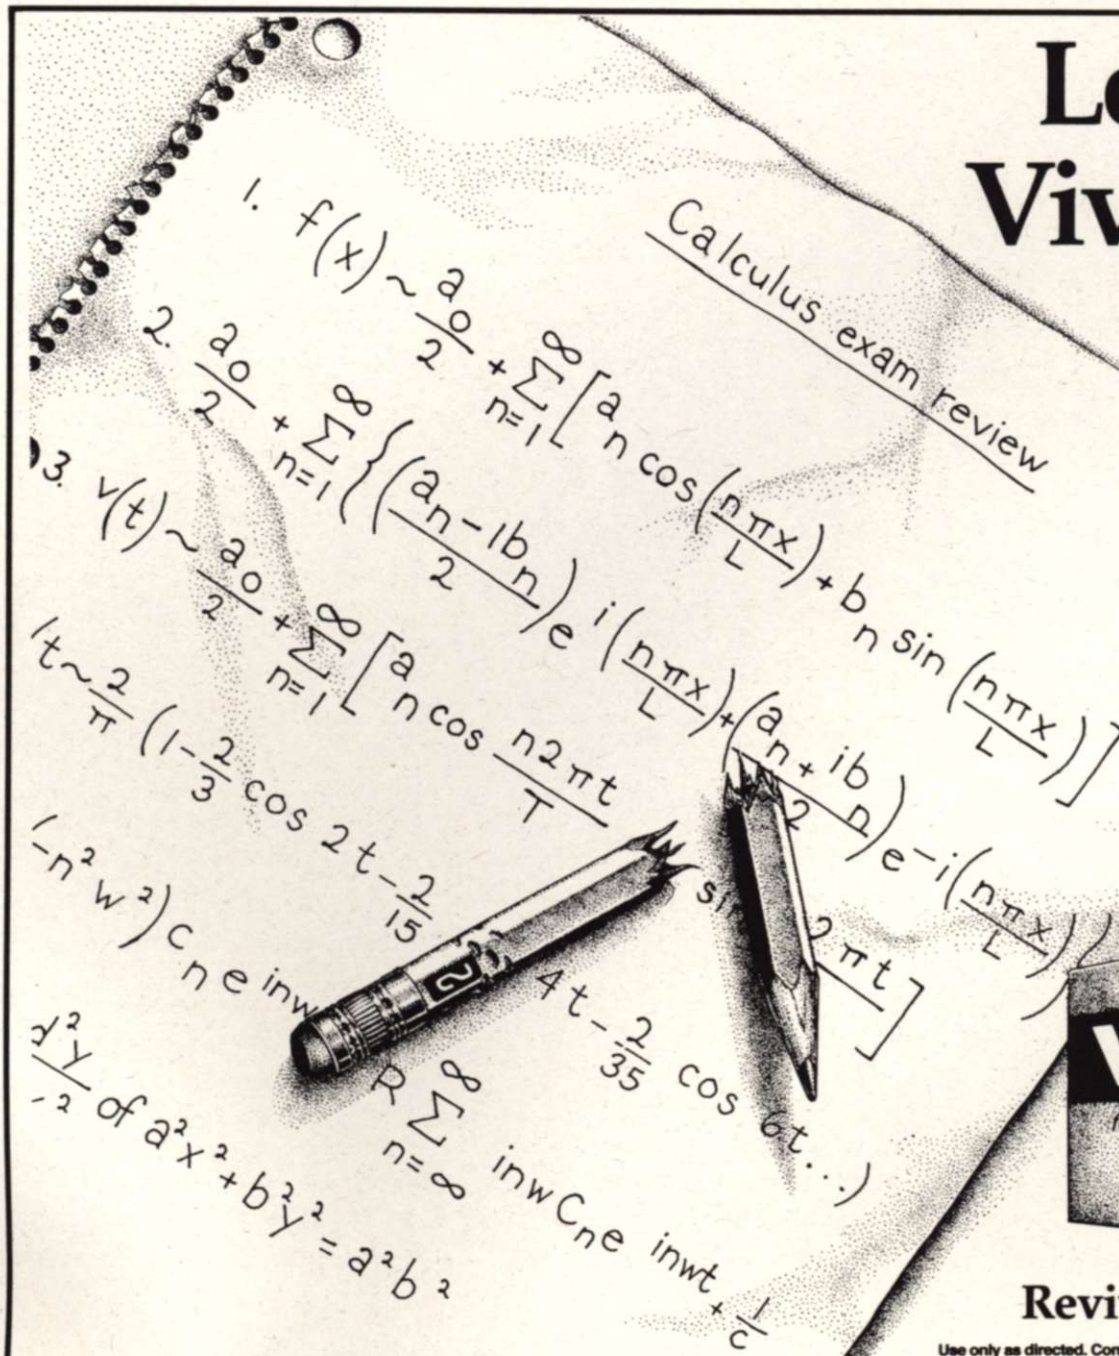 Calculus exam review
1. f(x) ~ a₀/2 + Σ n=1 ∞ [a n cos (nπx/L) + b n sin (nπx/L)]
2. a₀/2 + Σ n=1 ∞ {(a n - ib n/2) e i(nπx/L) + (a n + ib n/2) e -i(nπx/L)
3. v(t) ~ a₀/2 + Σ n=1 ∞ [a n cos n2πt/T 2πt]
t ~ 2/π (1 - 2/3 cos 2t - 2/15 4t - 2/35 cos 6t...)
(-n² w²) C n e inw
R Σ n=∞ ∞ inw C n e inwt + 1/c
d²y of a²x² + b²y² = a²b²
2
Use only as directed.